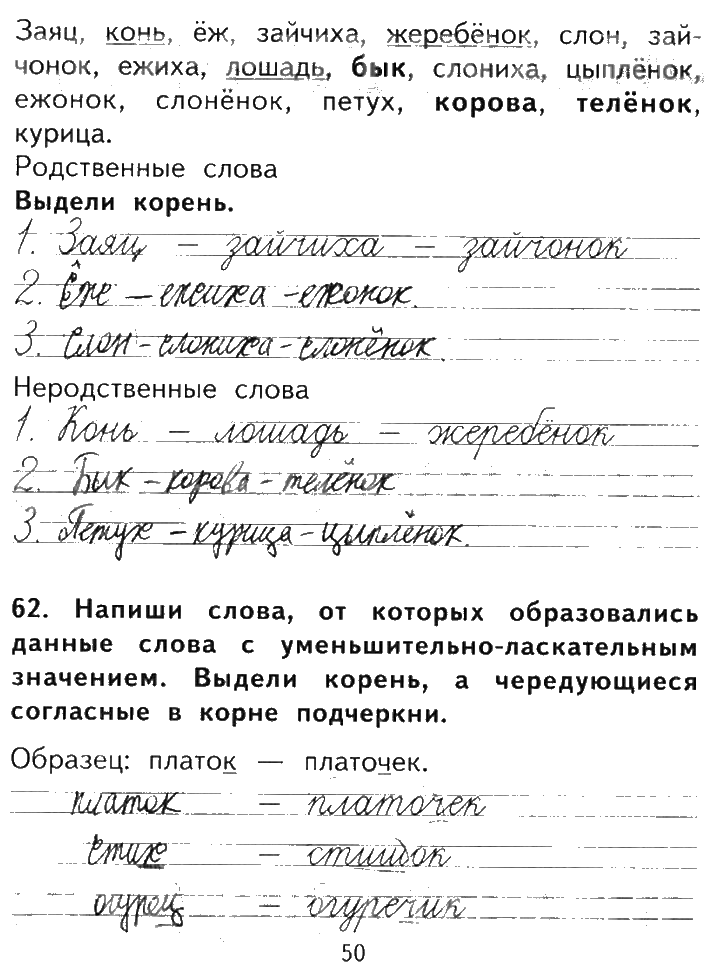 Заяц, конь, ёж, зайчиха, жеребёнок, слон, зай-
чонок, ежиха, лошадь, бык, слониха, цыплёнок,
ежонок, слонёнок, петух, корова, телёнок,
курица.
Родственные слова
Выдели корень.
1. Заяц — зайчиха — зайчонок
2. Ёж — ежиха - ежонок.
3. Слон - слониха - слонёнок.
Неродственные слова
1. Конь — лошадь — жеребёнок
2. Бык - корова - телёнок
3. Петух - курица - цыплёнок.
62. Напиши слова, от которых образовались
данные слова с уменьшительно-ласкательным
значением. Выдели корень, а чередующиеся
согласные в корне подчеркни.
Образец: платок — платочек.
платок — платочек
стих — стишок
огурец — огуречик
50